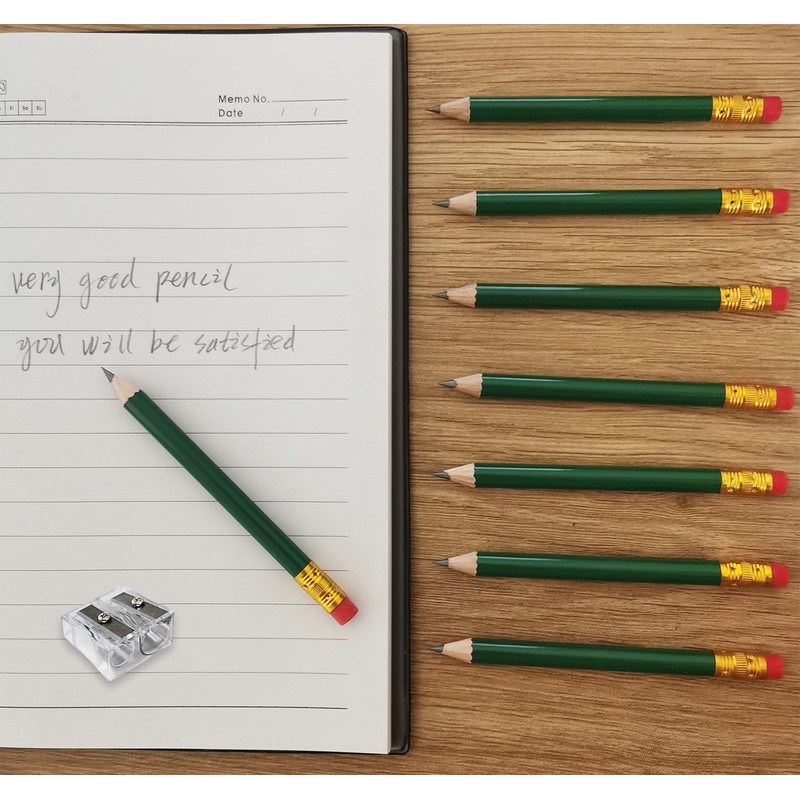 Fr Sa Su
Memo No.
Date / /
very good pencil
you will be satisfied